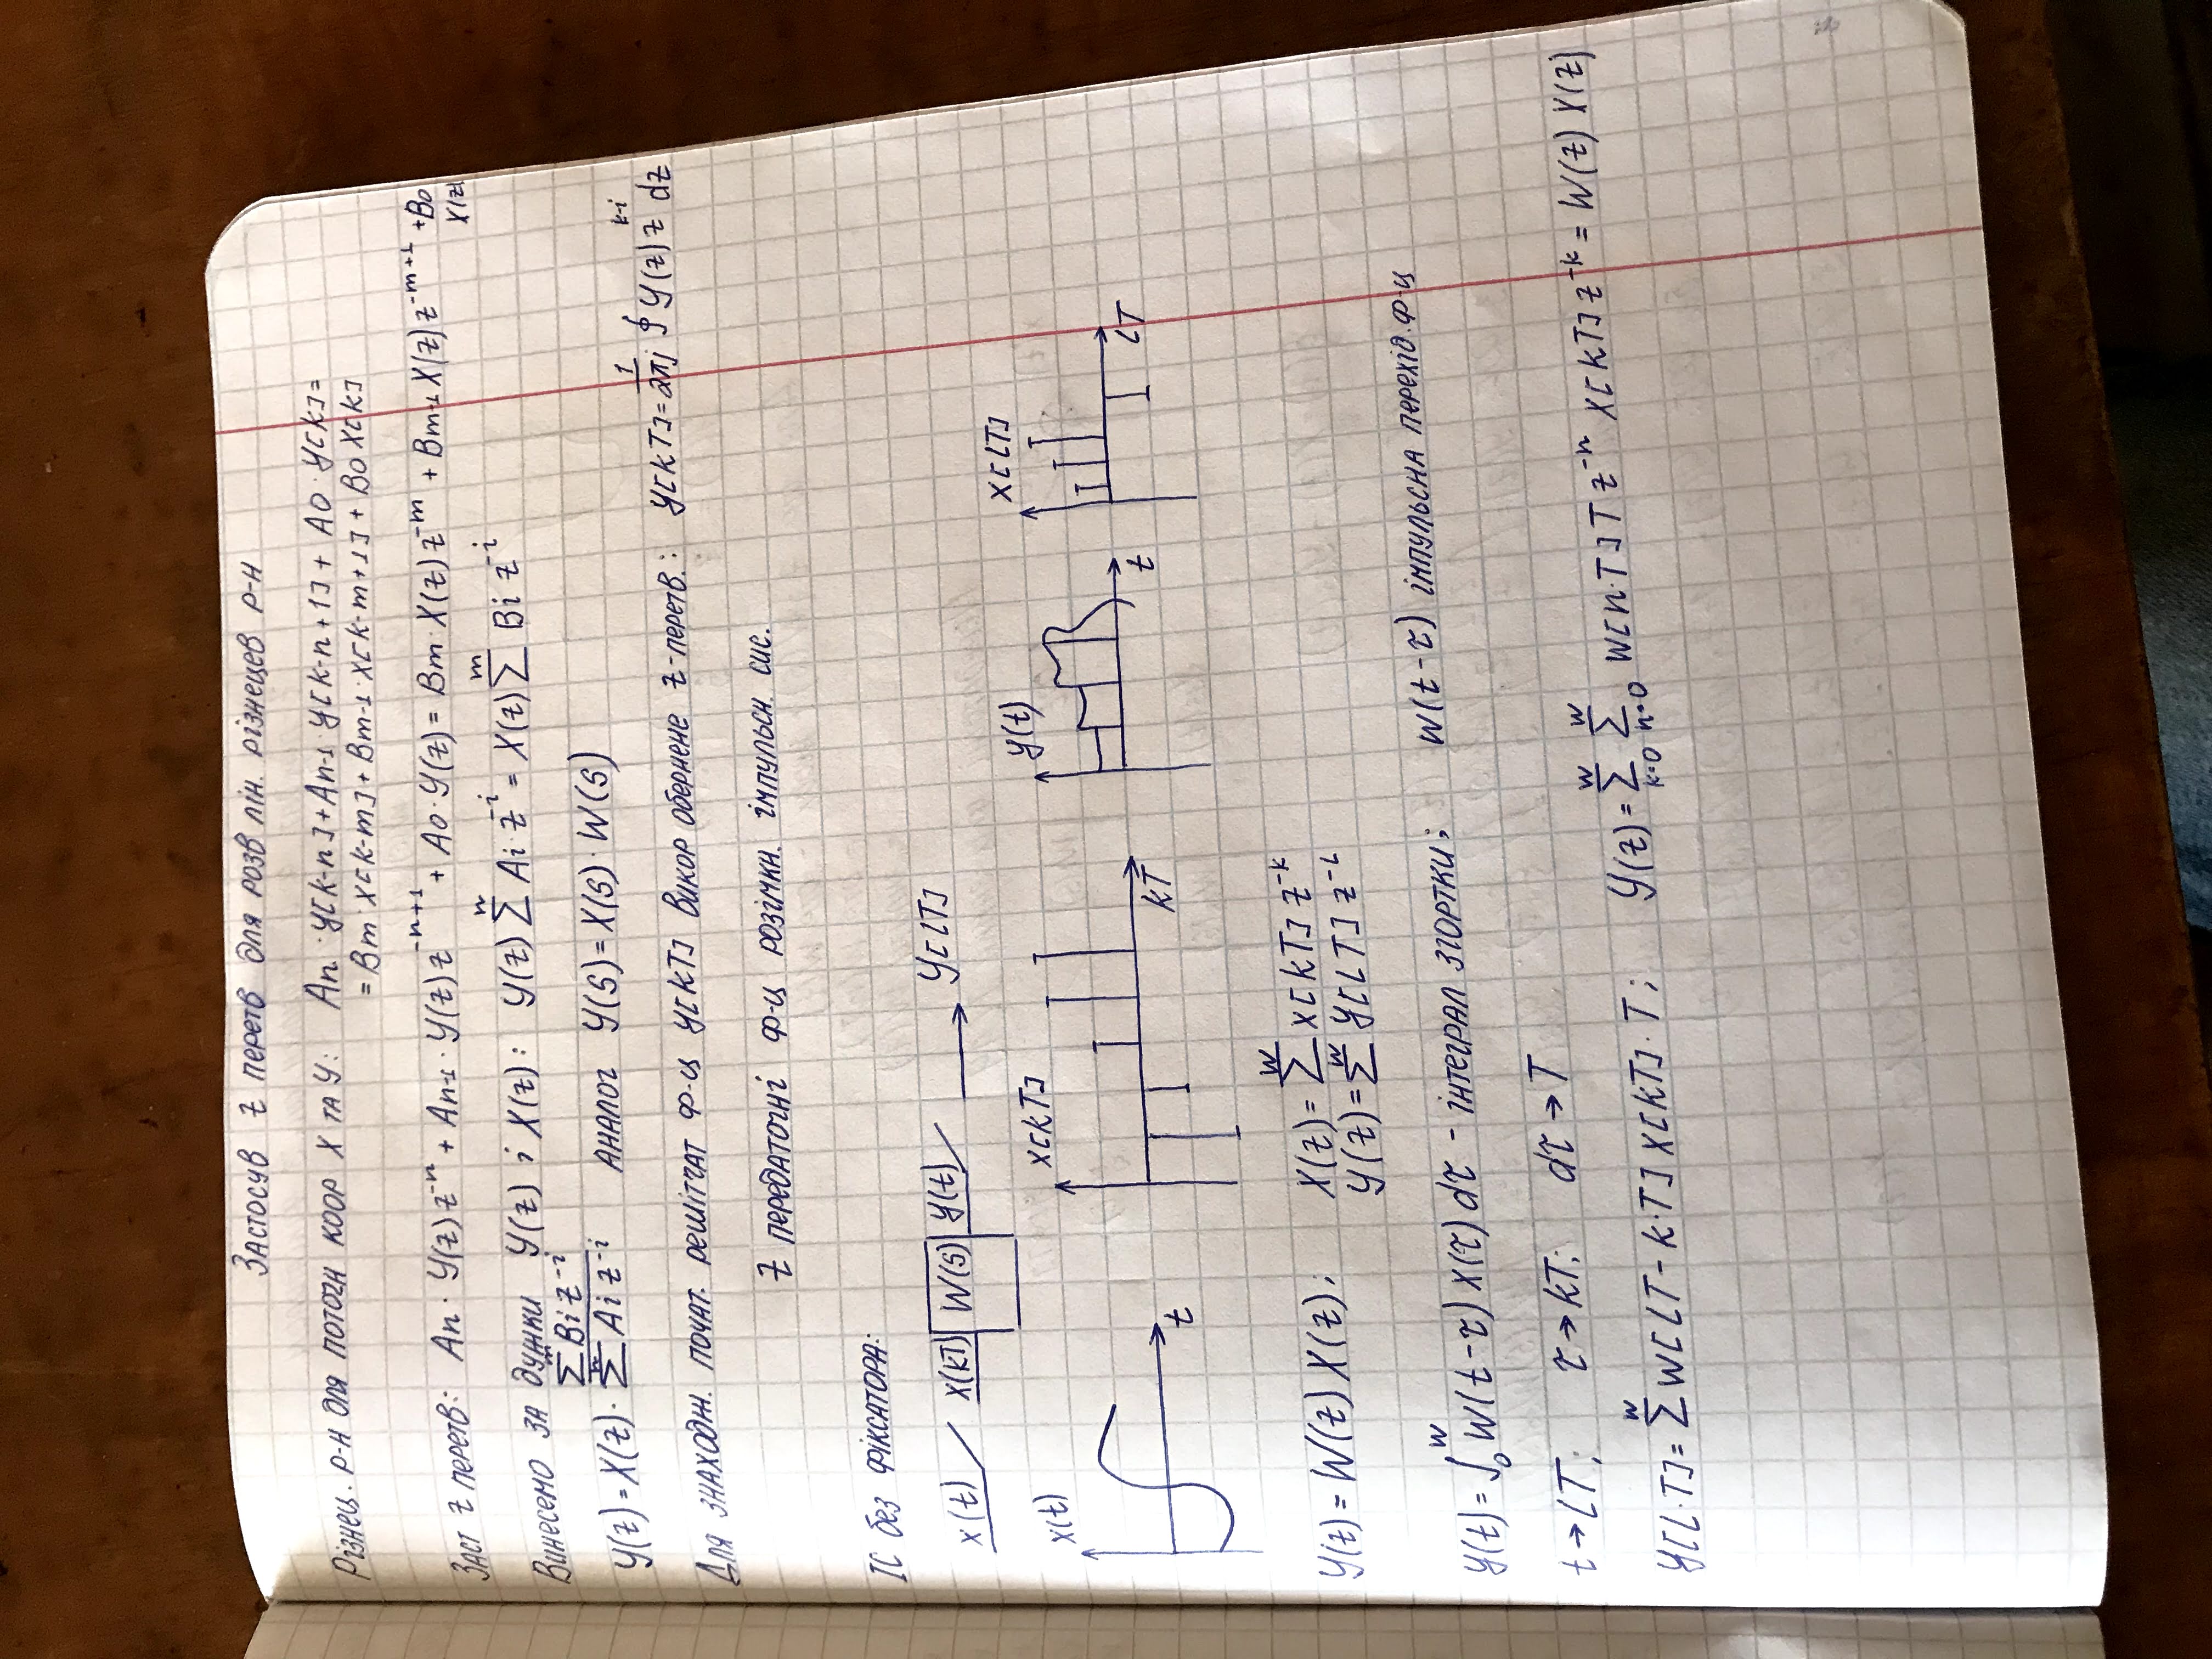 Застосув z перетв для розв лін. різнецев р-н
Різнец. р-н для поточн коор X та Y: An · y[k-n]+An-1 · y[k-n+1] + A0 · y[k]=
= Bm · X[k-m] + Bm-1 · X[k-m+1] + B0 X[k]
Заст z перетв: An · Y(z) z^-n + An-1 · Y(z) z^-n+1 + A0 · Y(z) = Bm · X(z) z^-m + Bm-1 X(z) z^-m+1 + B0
X(z)
Винесемо за дужки Y(z) і X(z): Y(z) ∑^n Ai · z^-i = X(z) ∑^m Bi z^-i
Y(z) = X(z) · ∑^m Bi z^-i / ∑^n Ai z^-i Аналог Y(s) = X(s) · W(s)
Для знаходж. почат. решітчат ф-ц y[kT] викор обернене z-перетв.: y[kT] = 1/2πj ∮ Y(z) z^k-i dz
Z передаточні ф-ц розімкн. імпульсн. сис.
ІС без фіксатора:
x(t) x(kT) W(s) y(t) y[lT]
x(t) t
x[kT] kT
y(t) t
x[lT] lT
Y(z) = W(z) X(z); X(z) = ∑^w x[kT] z^-k
Y(z) = ∑^w y[lT] z^-l
y(t) = ∫_0^w w(t-τ) x(τ) dτ - інтеграл згортки; w(t-τ) імпульсна перехід. ф-ц
t → lT; τ → kT; dτ → T
y[l·T] = ∑^w w[lT - k·T] x[kT] · T; Y(z) = ∑_k=0^w ∑_n=0^w w[n·T] T z^-n x[kT] z^-k = W(z) X(z)